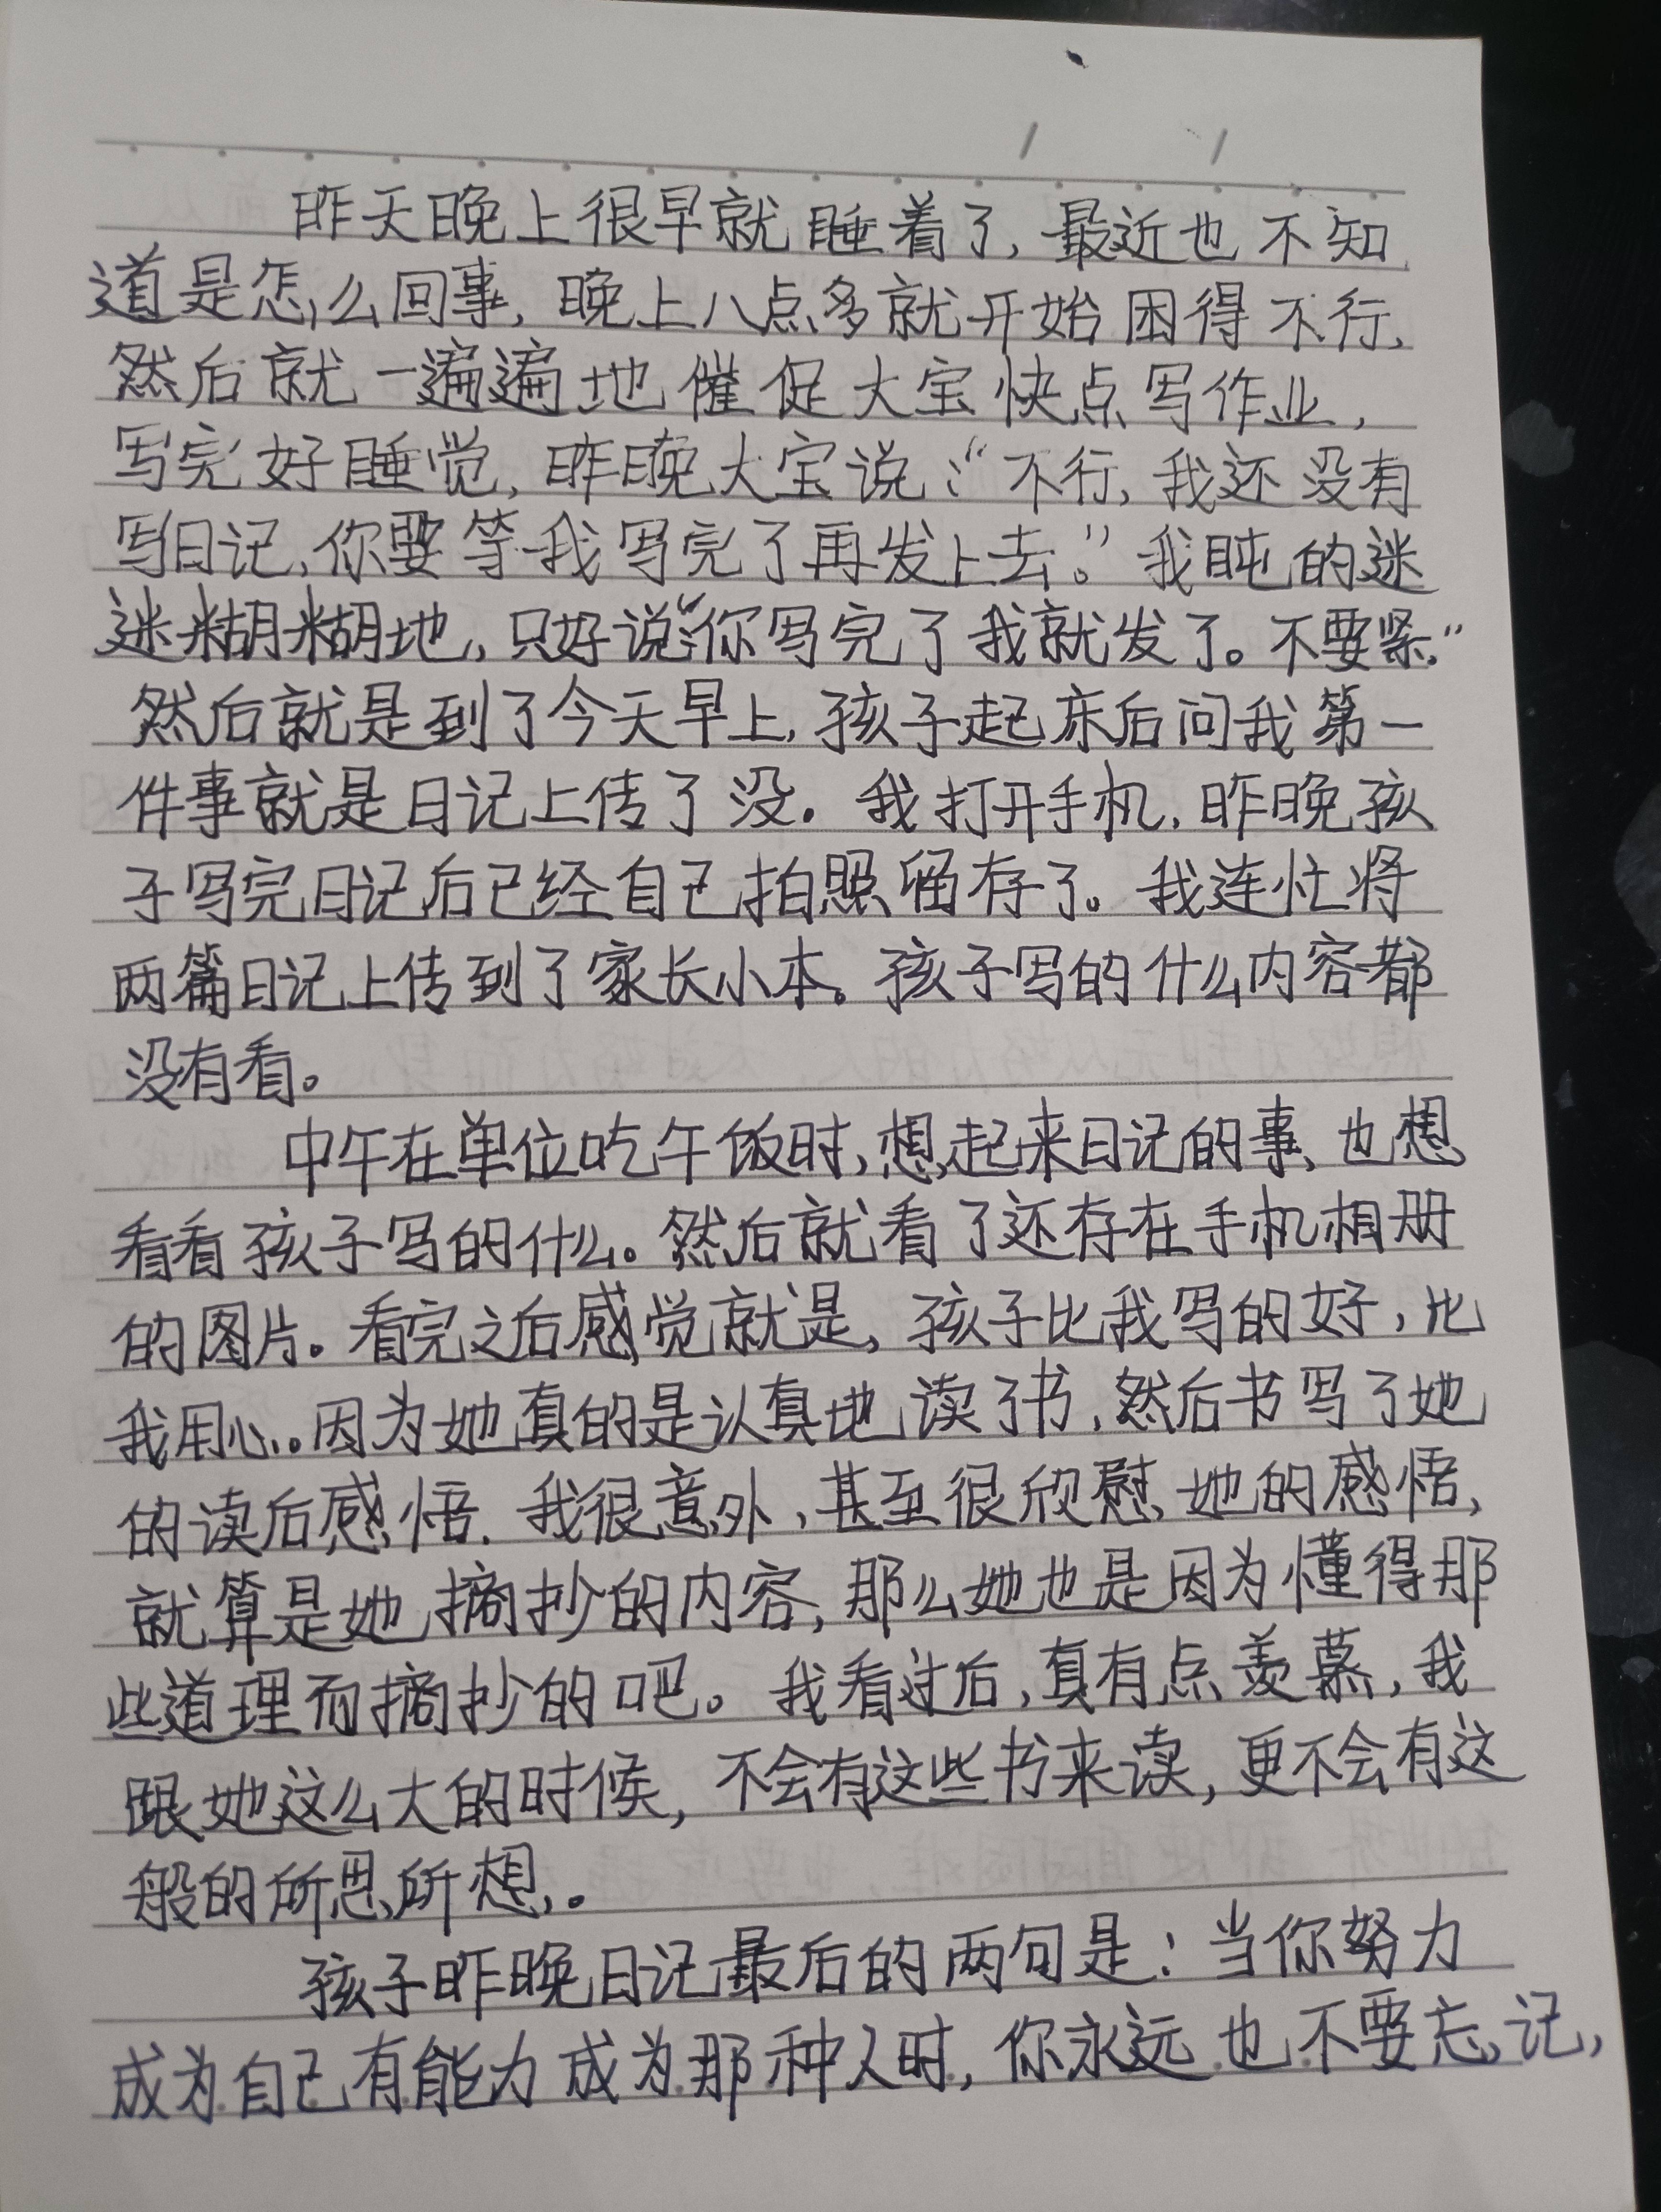 昨天晚上很早就睡着了,最近也不知
道是怎么回事,晚上八点多就开始困得不行,
然后就一遍遍地催促大宝快点写作业,
写完好睡觉,昨晚大宝说:“不行,我还没有
写日记,你要等我写完了再发上去。”我盹的迷
迷糊糊地,只好说:“你写完了我就发了。不要紧。”
然后就是到了今天早上,孩子起床后问我第一
件事就是日记上传了没。我打开手机,昨晚孩
子写完日记后已经自己拍照留存了。我连忙将
两篇日记上传到了家长小本。孩子写的什么内容都
没有看。
中午在单位吃午饭时,想起来日记的事,也想
看看孩子写的什么。然后就看了还存在手机相册
的图片。看完之后感觉就是,孩子比我写的好,比
我用心。因为她真的是认真地读了书,然后书写了她
的读后感悟。我很意外,甚至很欣慰,她的感悟,
就算是她摘抄的内容,那么她也是因为懂得那
些道理而摘抄的吧。我看过后,真有点羡慕,我
跟她这么大的时候,不会有这些书来读,更不会有这
般的所思所想。
孩子昨晚日记最后的两句是:当你努力
成为自己有能力成为那种人时,你永远也不要忘记,